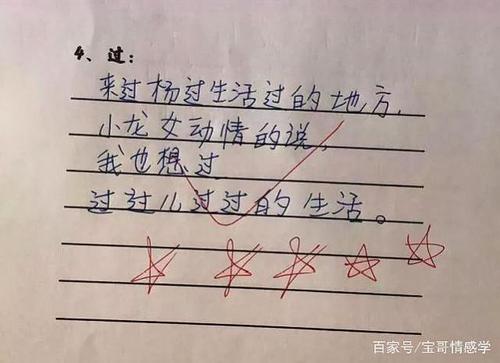 4、过：
来过杨过生活过的地方，
小龙女动情的说，
我也想过
过过儿过过的生活。
百家号/宝哥情感学